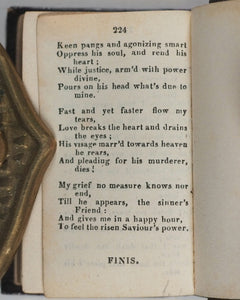 224
Keen pangs and agonizing smart
Oppress his soul, and rend his
heart ;
While justice, arm'd with power
divine,
Pours on his head what's due to
mine.
Fast and yet faster flow my
tears,
Love breaks the heart and drains
the eyes ;
His visage marr'd towards heaven
he rears,
And pleading for his murderer,
dies !
My grief no measure knows nor
end,
Till he appears, the sinner's
Friend :
And gives me in a happy hour,
To feel the risen Saviour's power.
FINIS.